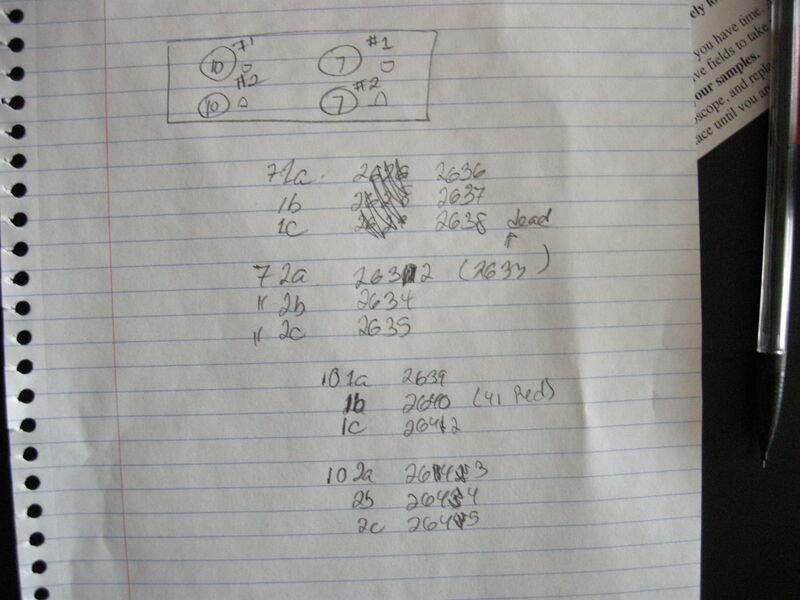 #1 #1
10 7
#2 #2
10 7
7 1a 2636
1b 2637
1c 2638 dead
7 2a 2632 (2633)
" 2b 2634
" 2c 2635
10 1a 2639
1b 2640 (41 Red)
1c 2642
10 2a 2643
2b 2644
2c 2645
ely
you have time,
ve fields to take
our samples.
oscope, and repla
ace until you are